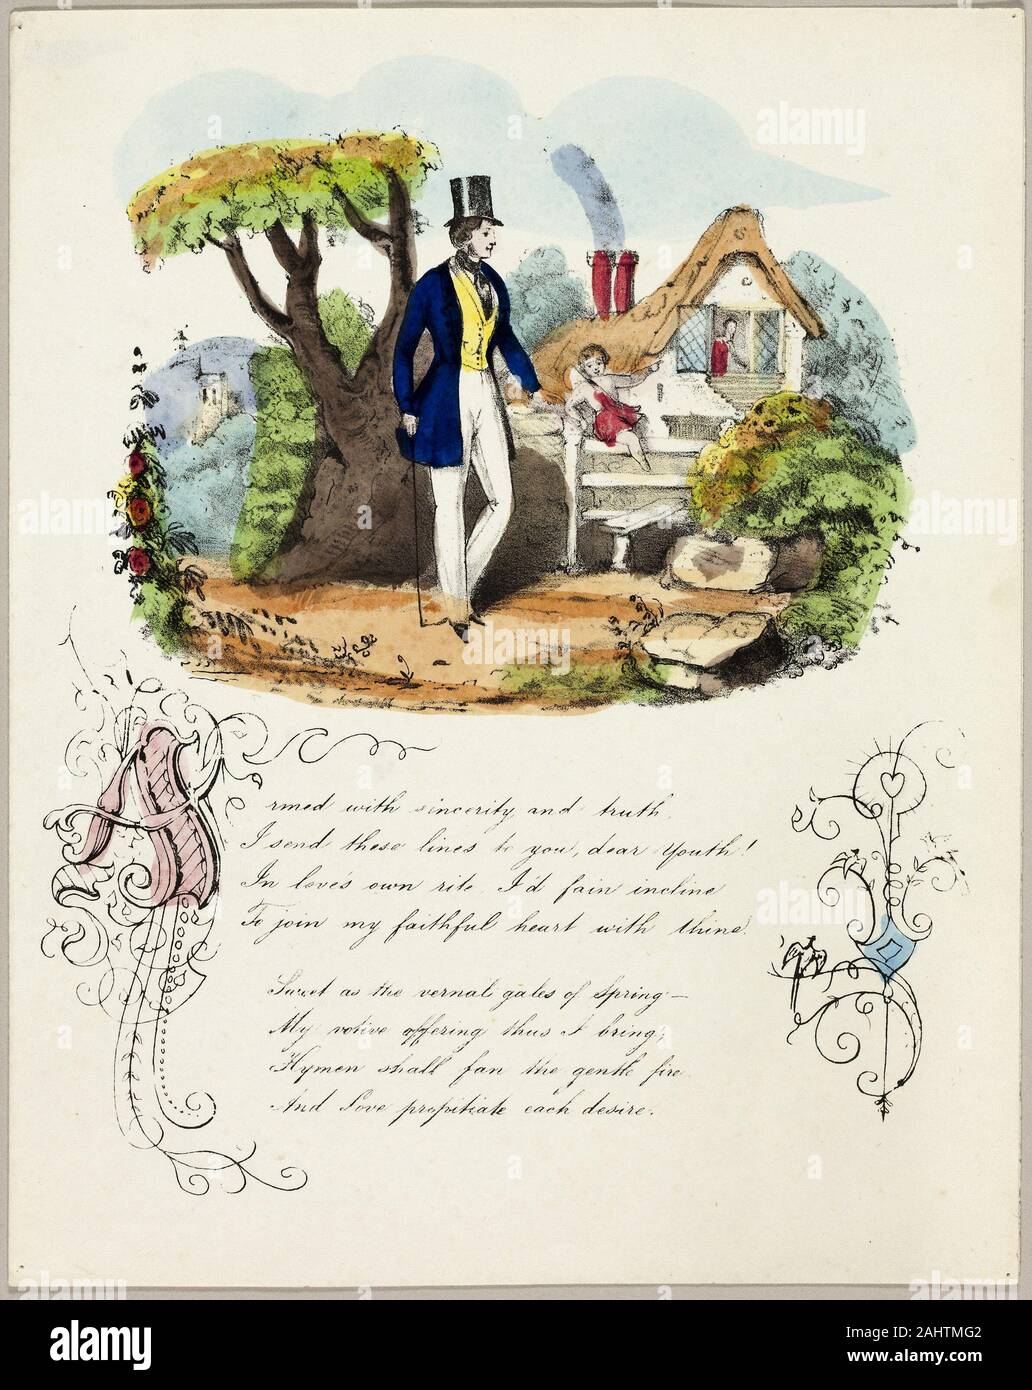 Armed with sincerity and truth,
I send these lines to you, dear Youth!
In love's own rite I'd fain incline
To join my faithful heart with thine.
Sweet as the vernal gales of Spring—
My votive offering thus I bring;
Hymen shall fan the gentle fire
And Love propitiate each desire.
alamy
Image ID: 2AHTMG2
www.alamy.com